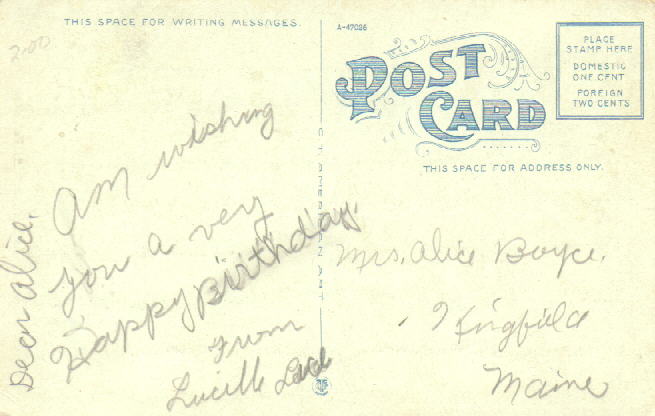 THIS SPACE FOR WRITING MESSAGES.
2.00
Dear Alice,
Am wishing
you a very
Happy "Birthday"
From
Lucille
A-47026
POST CARD
PLACE
STAMP HERE
DOMESTIC
ONE CENT
FOREIGN
TWO CENTS
THIS SPACE FOR ADDRESS ONLY.
C.T. AMERICAN ART
Mrs. Alice Boyce.
Kingfield
Maine